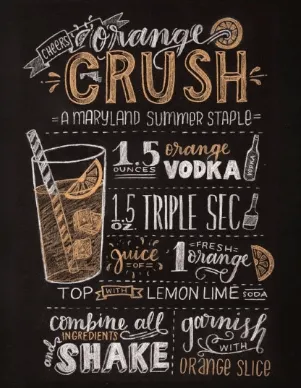 CHEERS!
orange
CRUSH
=A MARYLAND SUMMER STAPLE=
1.5 OUNCES orange VODKA
1.5 OZ. TRIPLE SEC
juice OF 1 FRESH orange
TOP WITH LEMON LIME SODA
combine all
INGREDIENTS
and SHAKE
garnish
WITH
ORANGE SLICE